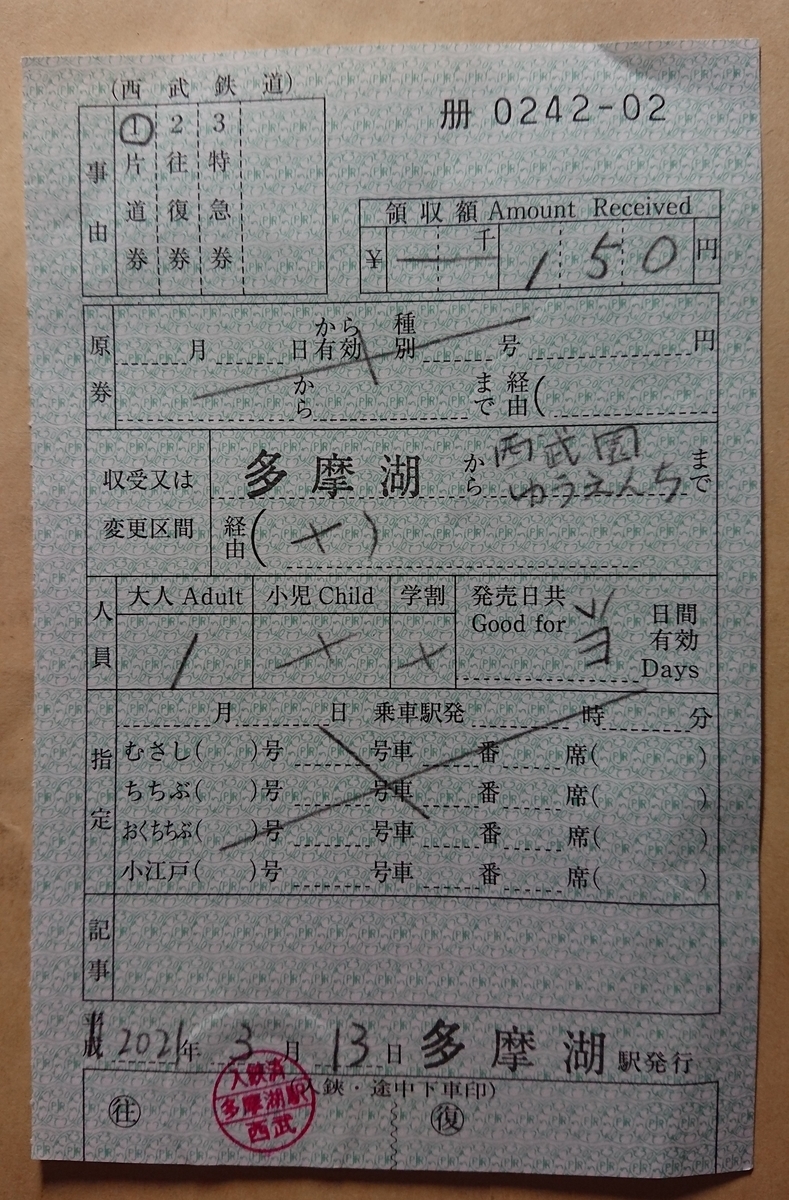 (西武鉄道)
冊 0242-02
事由
① 片道券
2 往復券
3 特急券
領収額 Amount Received
¥ 千 150 円
原券
月 日から有効 種別 号 円
から まで 経由(
収受又は変更区間
多摩湖 から 西武園ゆうえんち まで
経由( )
人員
大人 Adult 小児 Child 学割 発売日共 Good for 当 日間有効 Days
1
指定
月 日 乗車駅発 時 分
むさし( )号 号車 番 席( )
ちちぶ( )号 号車 番 席( )
おくちちぶ( )号 号車 番 席( )
小江戸( )号 号車 番 席( )
記事
平成 2021年 3月 13日 多摩湖 駅発行
入鋏・途中下車印)
往 復
入鋏済
多摩湖駅
西武